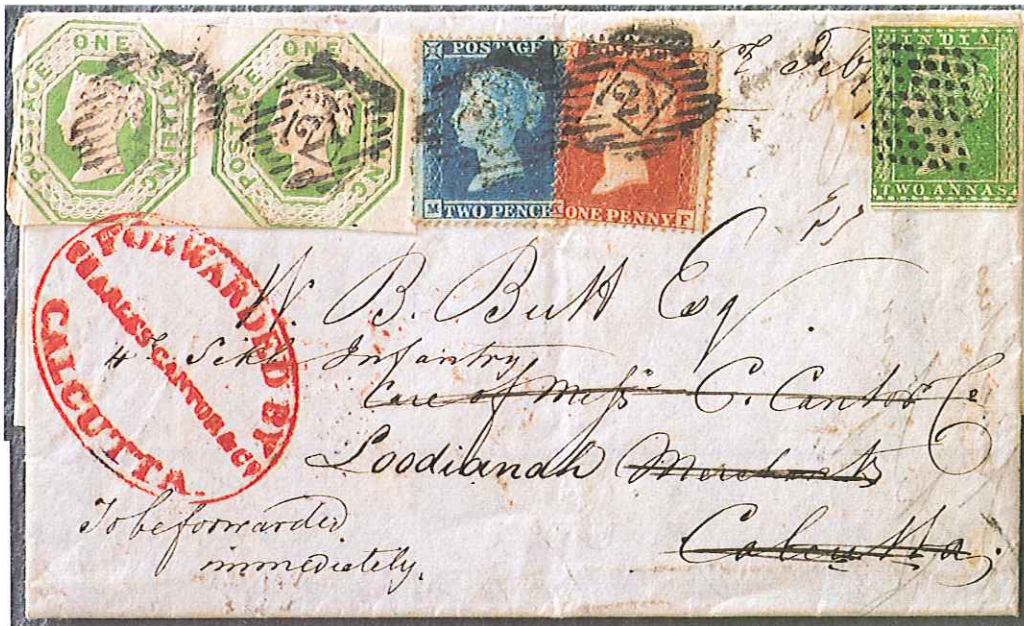 ONE SHILLING POSTAGE
ONE SHILLING POSTAGE
POSTAGE
M TWO PENCE K
POSTAGE
ONE PENNY F
INDIA
TWO ANNAS
12
12
Feby
FORWARDED BY
CHARLES CANTOR & Co
CALCUTTA.
W. B. Butt Esq
4th Sikh Infantry
Care of Messrs C. Cantor Co
Loodianah Merchants
Calcutta
To be forwarded
immediately.